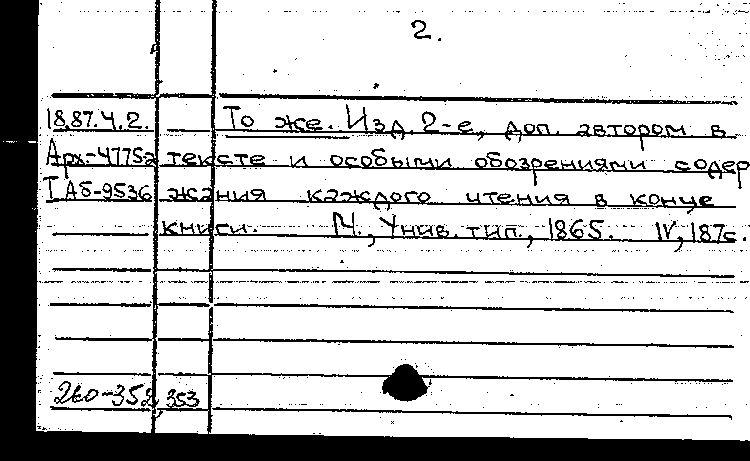 2.
18.87.4.2. То же. Изд. 2-е, доп. автором в
Арх-47752 тексте и особыми обозрениями содер
I Аб-9536 жания каждого чтения в конце
книги. М., Унив. тип., 1865. IV, 187с.
260-352,353